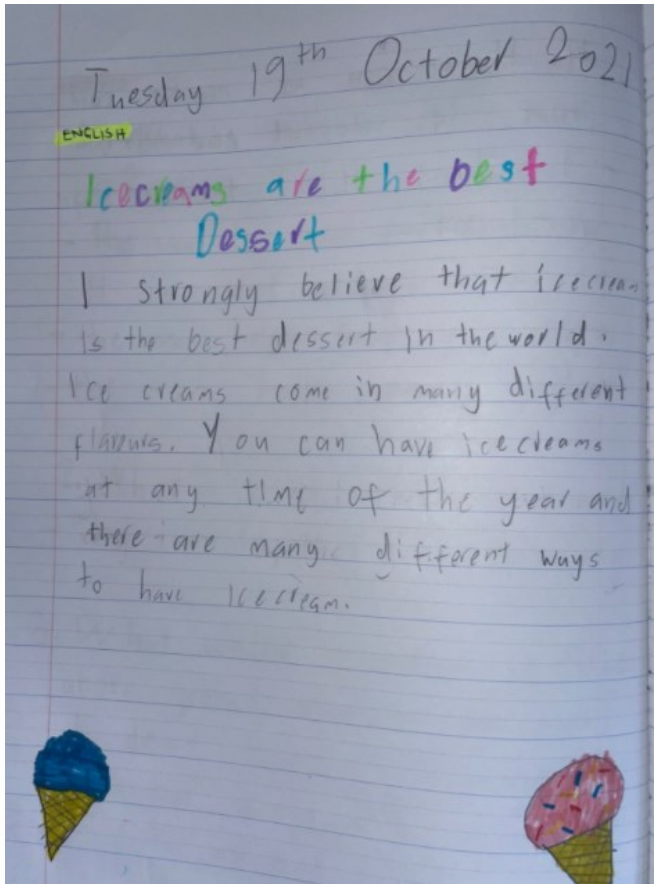 Tuesday 19th October 2021
ENGLISH
Icecreams are the best
Dessert
I strongly believe that icecream
is the best dessert in the world.
Ice creams come in many different
flavours. You can have icecreams
at any time of the year and
there are many different ways
to have icecream.